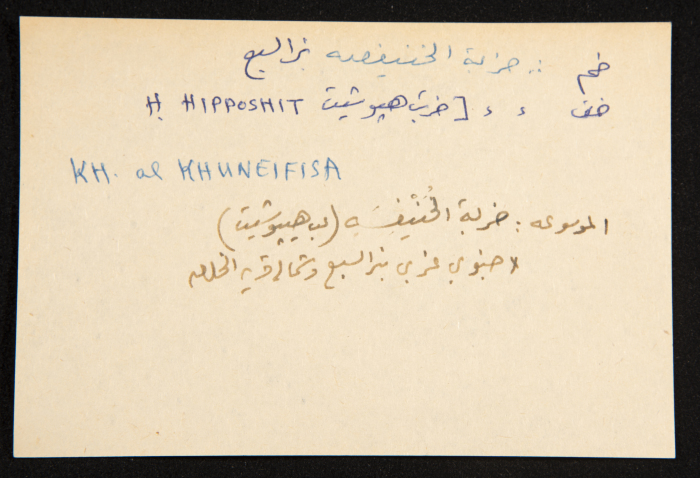 خم :: خربة الخنيفسه بئرالسبع
خف ء ء [خربت هيپوشيت H. HIPPOSHIT
KH. al KHUNEIFISA
الموسوعه : خربة الخُنَيْفِسَه (عب هيپوشيت)
* جنوبي غربي بئرالسبع وشمالي قرية الخلصه